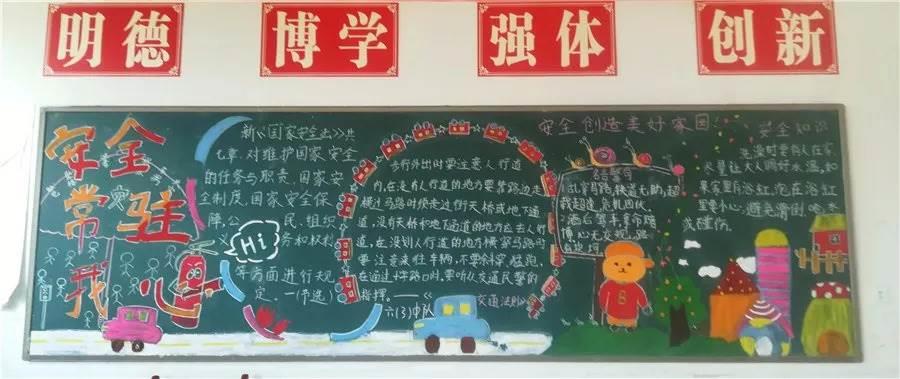 明德
博学
强体
创新
安全
常驻
我
新《国家安全法》共
七章,对维护国家安全
的任务与职责,国家安
全制度,国家安全保
障,公 民、组织
义 务和权利
等方面进行规
定。一(节选)
Hi
步行外出时要注意人行道
内,在没有人行道的地方要靠路边走
横过马路时须走过街天桥或地下通
道,没有天桥和地下通道的地方应走人行
道,在没划人行道的地方横穿马路时
要注意来往车辆,不要斜穿,猛跑,
在通过十字路口时,要听从交通民警的
指挥。——《
交通法则
六(3)中队
安全创造美好家园
乱穿马路,铁道走助,超
我超速,危机四伏。
酒后驾车
安全知识
洗澡时要有人在家,
尽量让大人调好水温,如
果家里有浴缸,泡在浴缸
里要小心,避免滑倒、呛水
或碰伤。
B